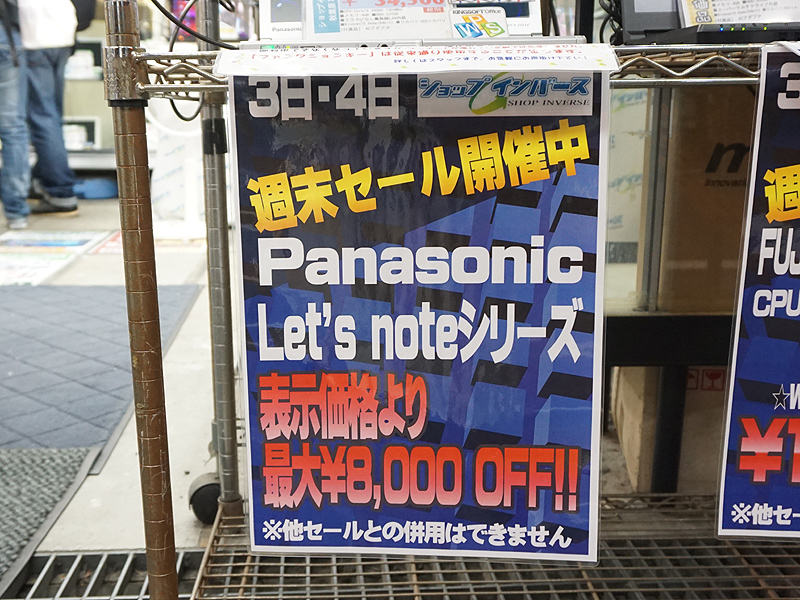 ¥ 34,500
KINGSOFT Office
WPS
Panasonic
3日・4日
ショップインバース
SHOP INVERSE
週末セール開催中
Panasonic
Let's noteシリーズ
表示価格より
最大¥8,000 OFF!!
※他セールとの併用はできません
3
週
FUJ
CPU
☆W
¥1
※他セー